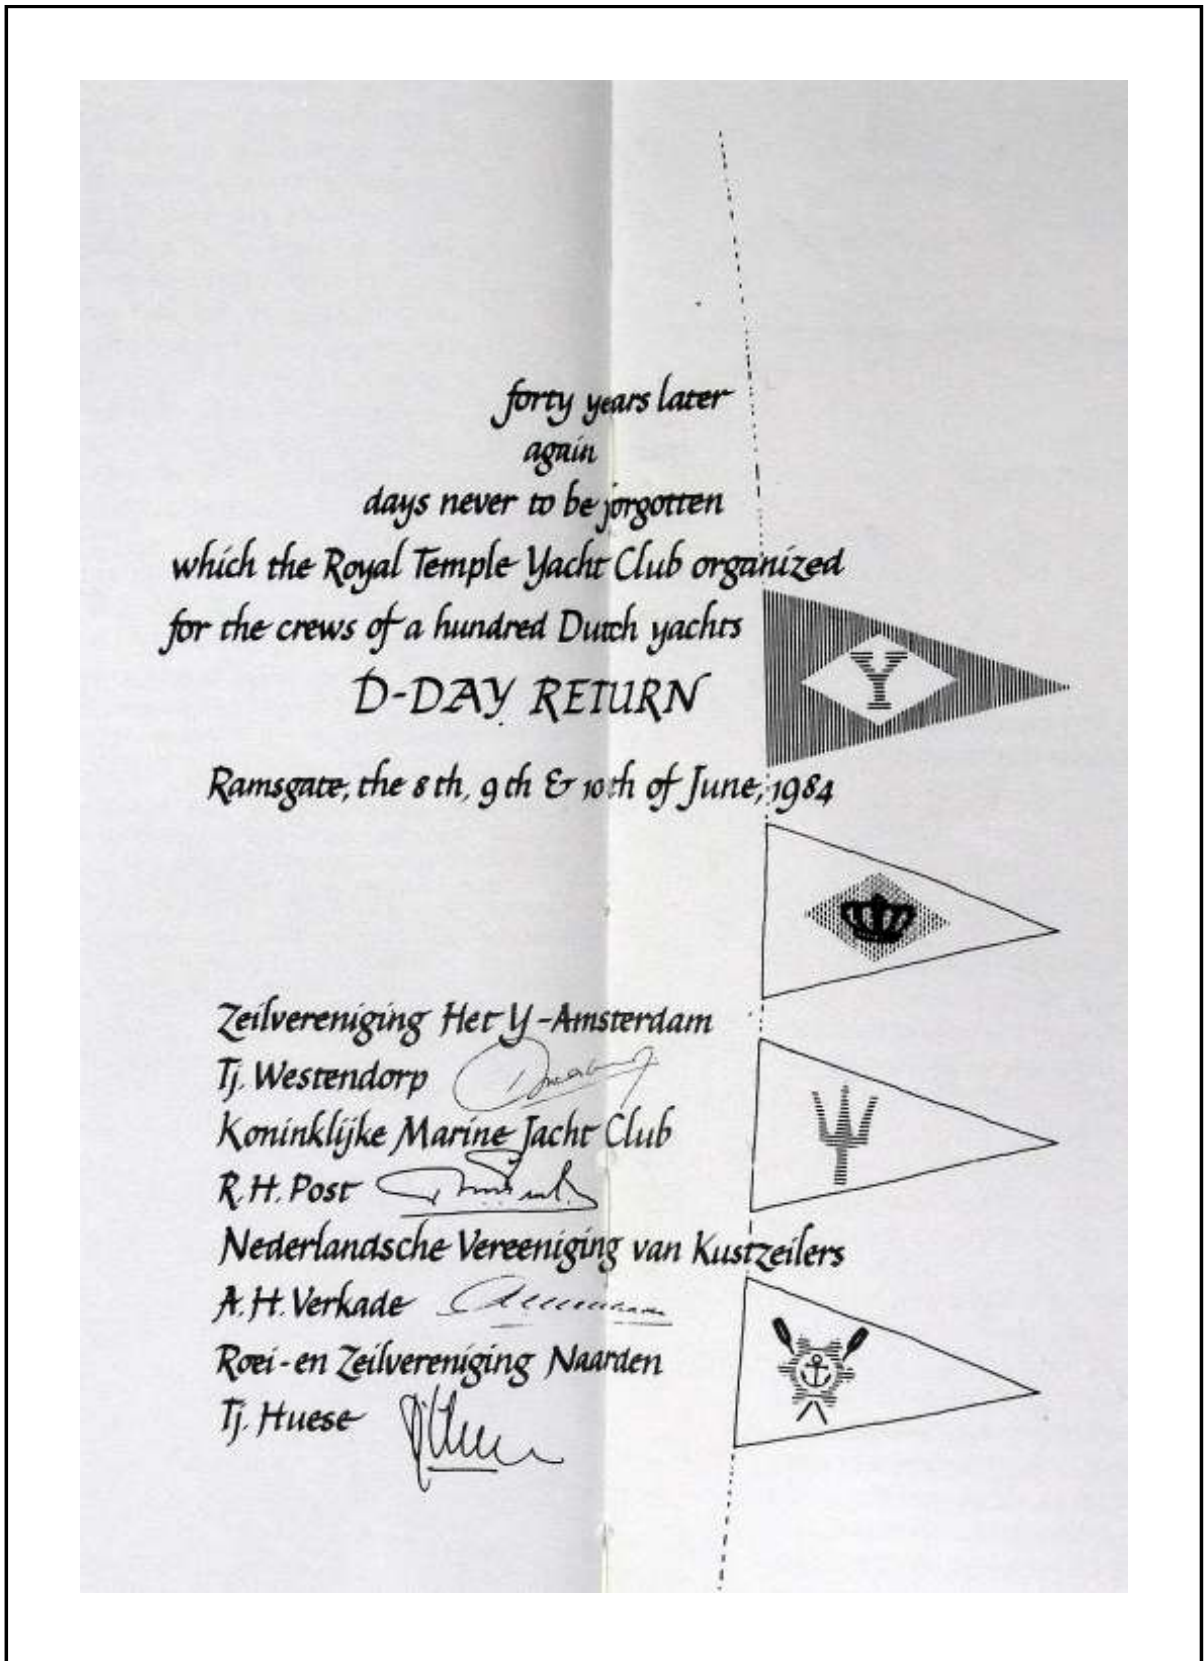 forty years later
again
days never to be forgotten
which the Royal Temple Yacht Club organized
for the crews of a hundred Dutch yachts
D-DAY RETURN
Y
Ramsgate, the 8th, 9th & 10th of June, 1984
Zeilvereniging Het Y-Amsterdam
Tj. Westendorp
Koninklijke Marine Jacht Club
R.H. Post
Nederlandsche Vereeniging van Kustzeilers
A.H. Verkade
Roei-en Zeilvereniging Naarden
Tj. Huese